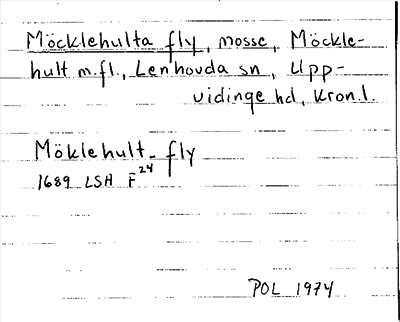 Möcklehulta fly, mosse, Möckle-
hult m.fl., Lenhovda sn, Upp-
vidinge hd, Kron.l.
Möklehult_fly
1689 LSH F²⁴
POL 1974